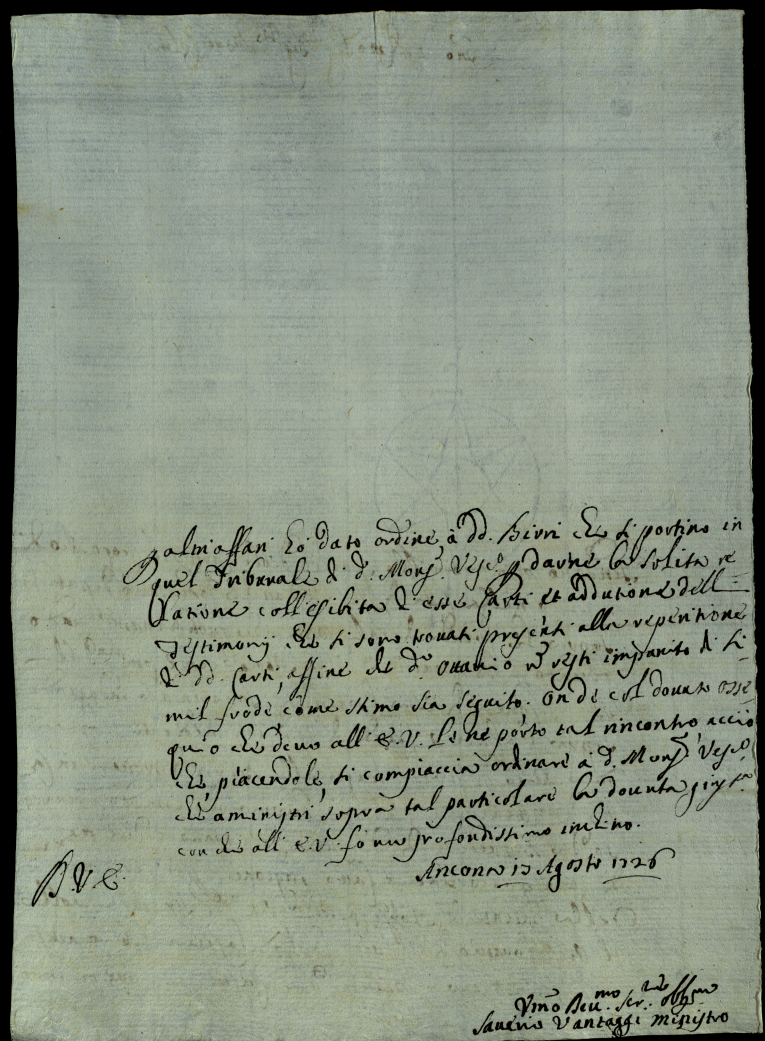 altri affari hò dato ordine à dd. Birri che si portino in
quel Tribunale di d. Monsr. Vesco p darne la solita re
latione coll'esibita di esse Carti et addutione dell
testimonij che si sono trovati presenti alla reperitione
di dd. Carti, affine che do Ottavio nō resti impunito di si-
mil frode come stimo sia seguito. Onde col dovuto osse
quio che devo all'E.V. le ne porto tal rincontro acciò
che, piacendole, si compiaccia ordinare à d. Monsr. Vesco
che aministri sopra tal particolare la dovuta giusta
con che all'E.V. fò un profondissimo inchino.
Ancona 13 Agosto 1726
D.V.E.
Vmō Devmo Ser.re obbmo
Saverio Vantaggi Ministro